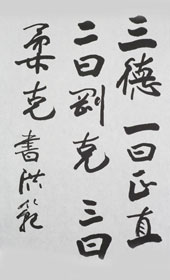 三德一曰正直
二曰剛克三曰
柔克書洪範